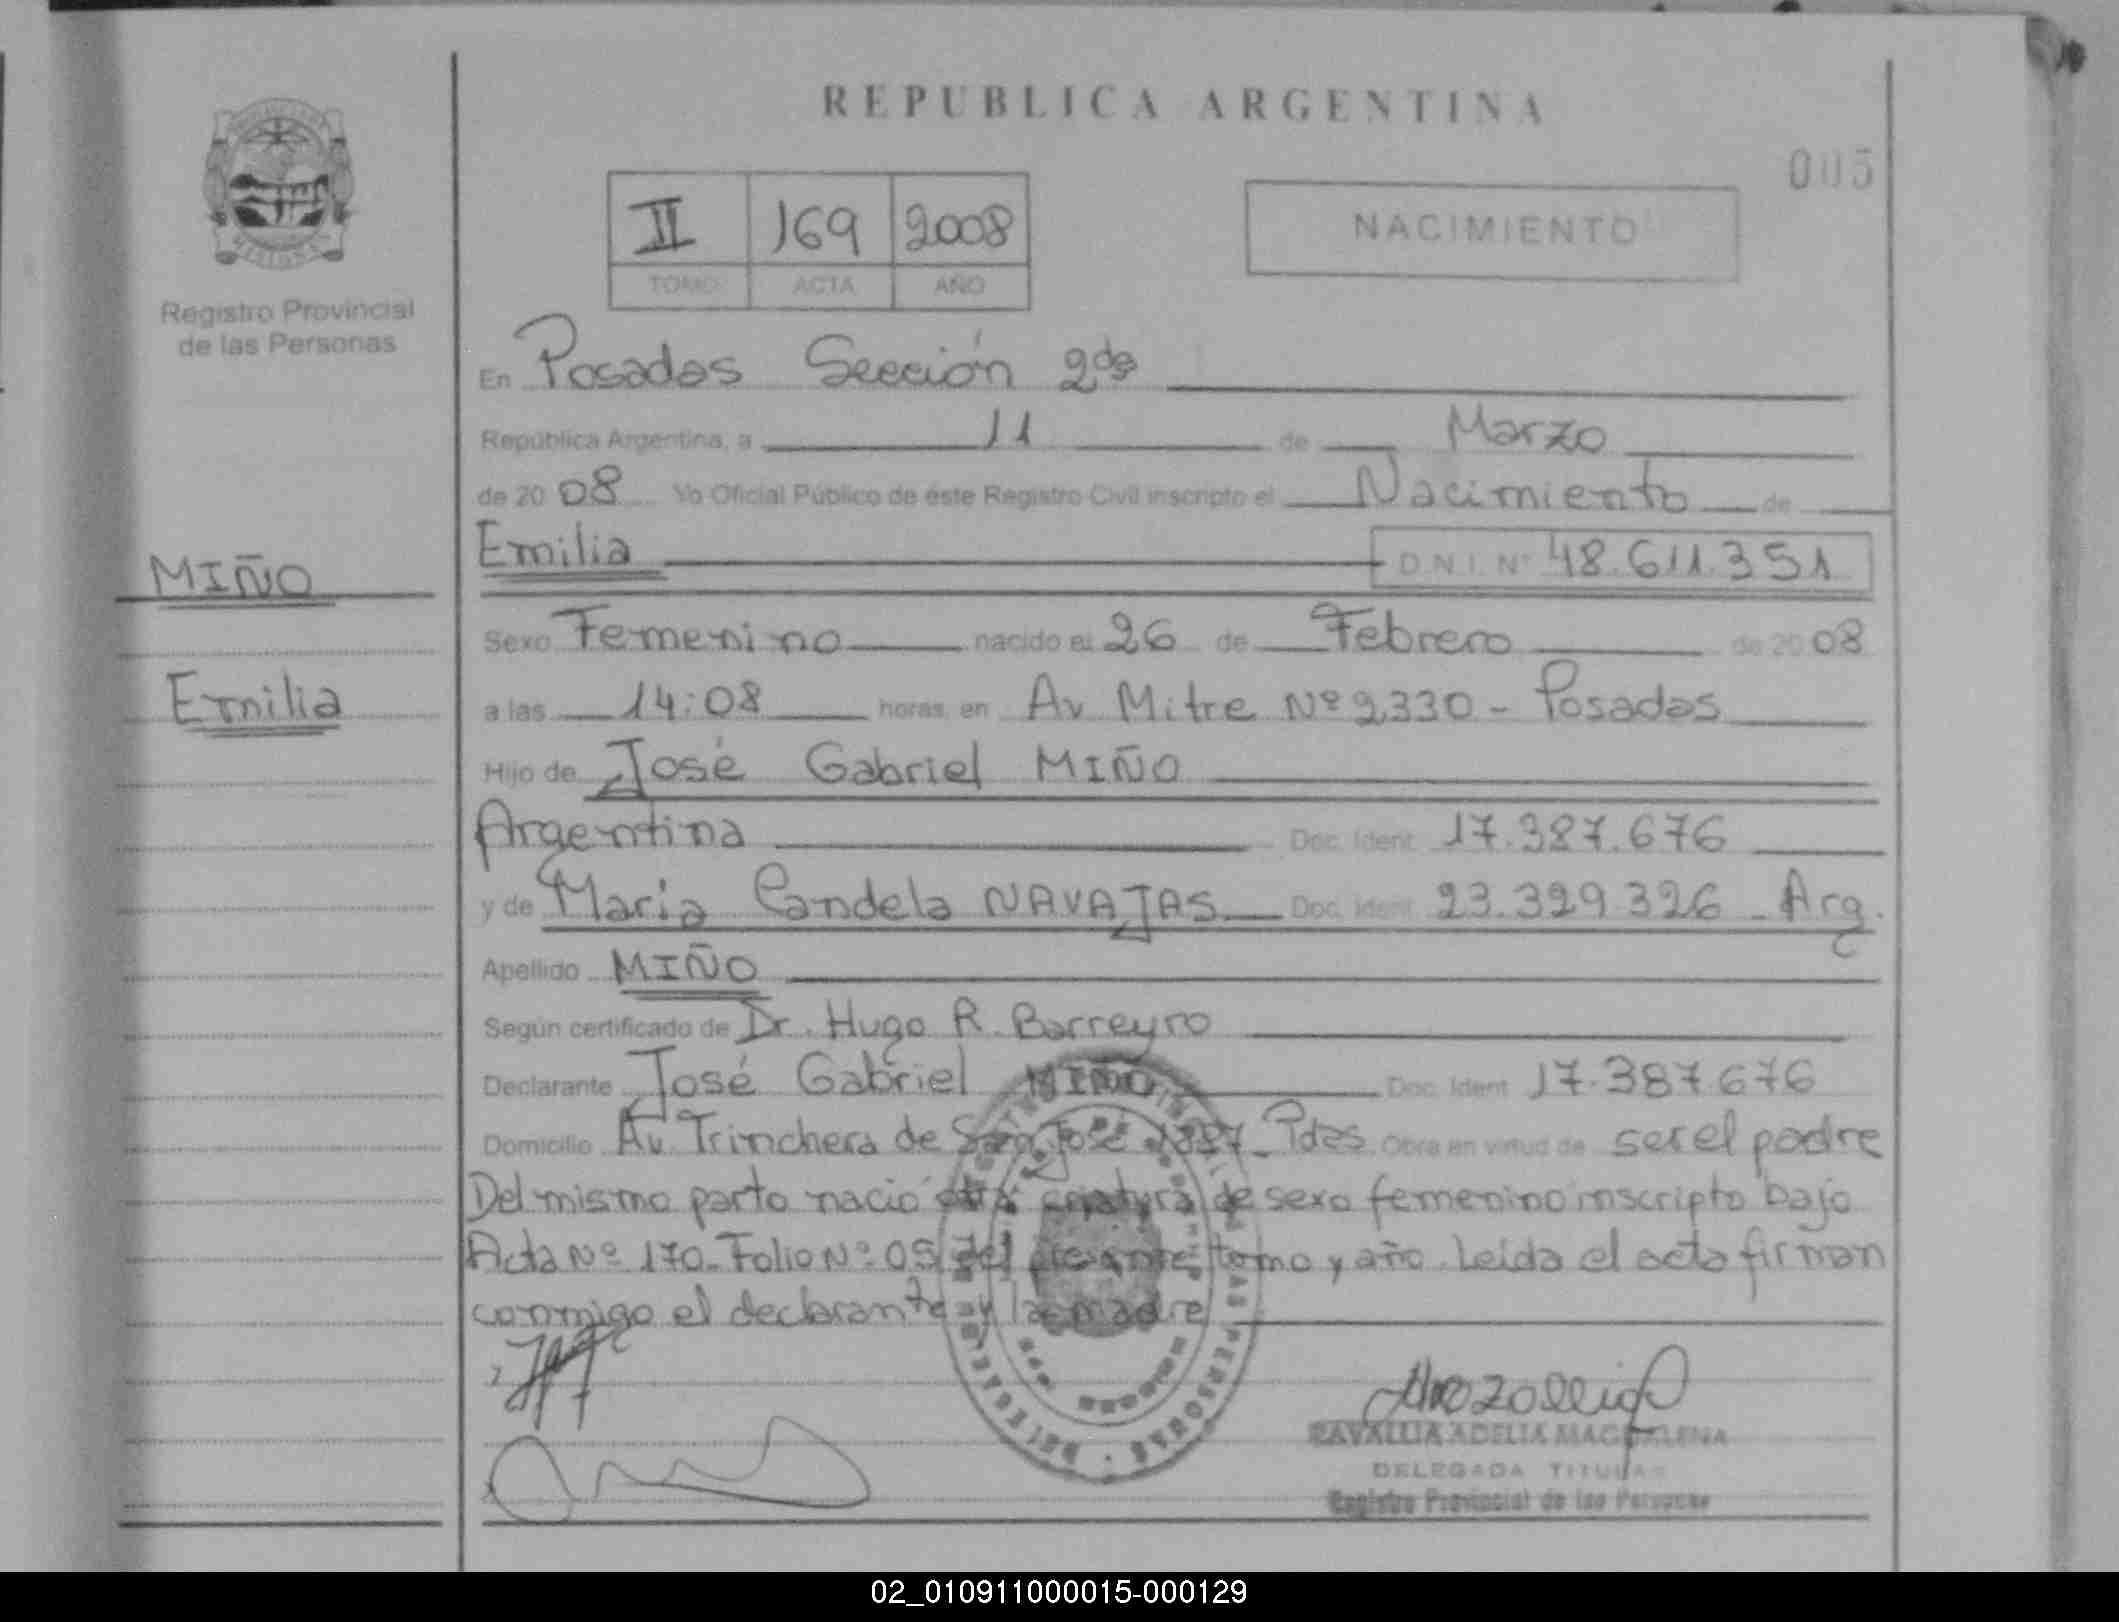 REPUBLICA ARGENTINA
005
II 169 2008
TOMO ACTA AÑO
NACIMIENTO
MISIONES
Registro Provincial
de las Personas
En Posadas Sección 2da
República Argentina, a 11 de Marzo
de 20 08 Yo Oficial Público de éste Registro Civil inscripto el Nacimiento de
MIÑO
Emilia D.N.I. Nº 48.611.351
Sexo Femenino nacido el 26 de Febrero de 20 08
Emilia
a las 14:08 horas, en Av. Mitre Nº 2330 - Posadas
Hijo de José Gabriel MIÑO
Argentina Doc. Ident. 17.387.676
y de Maria Candela NAVAJAS Doc. Ident. 23.329.326 - Arg.
Apellido MIÑO
Según certificado de Dr. Hugo R. Barreyro
Declarante José Gabriel MIÑO Doc. Ident. 17.387.676
Domicilio Av. Trinchera de San José 1887 - Pdas Obra en virtud de ser el padre
Del mismo parto nació otra criatura de sexo femenino inscripto bajo
Acta Nº 170 - Folio Nº 05 del presente tomo y año. Leida el acta firman
conmigo el declarante y la madre
ADELIA MAGDALENA
DELEGADA TITULAR
Registro Provincial de las Personas
02_010911000015-000129